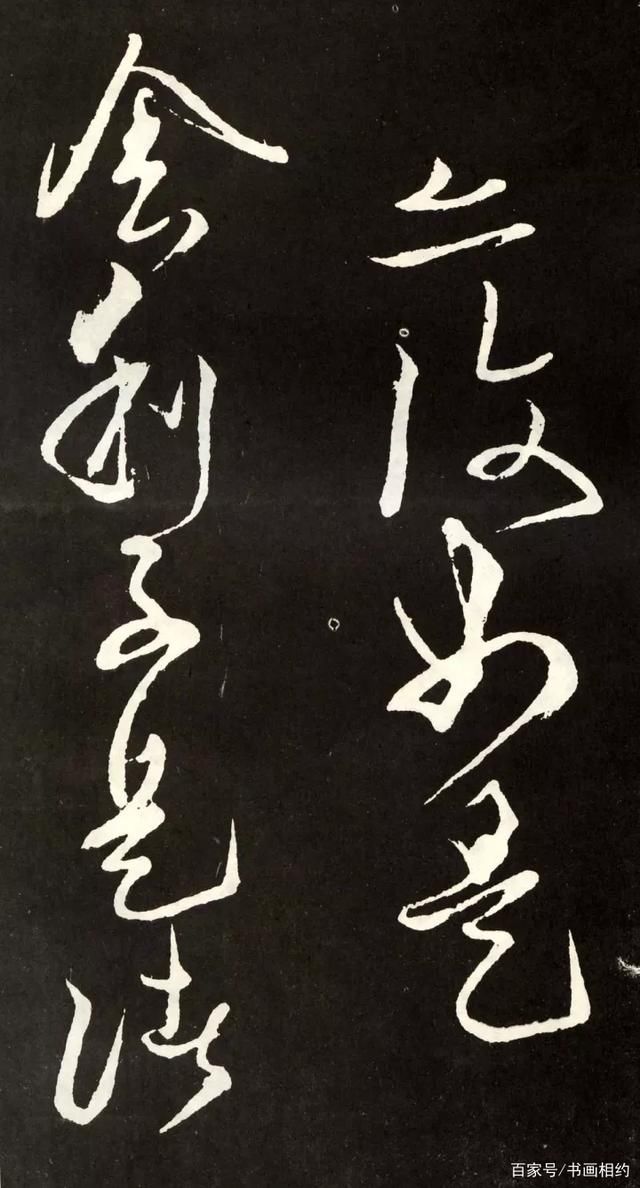 亦復如是
舍利子是諸
百家号/书画相约